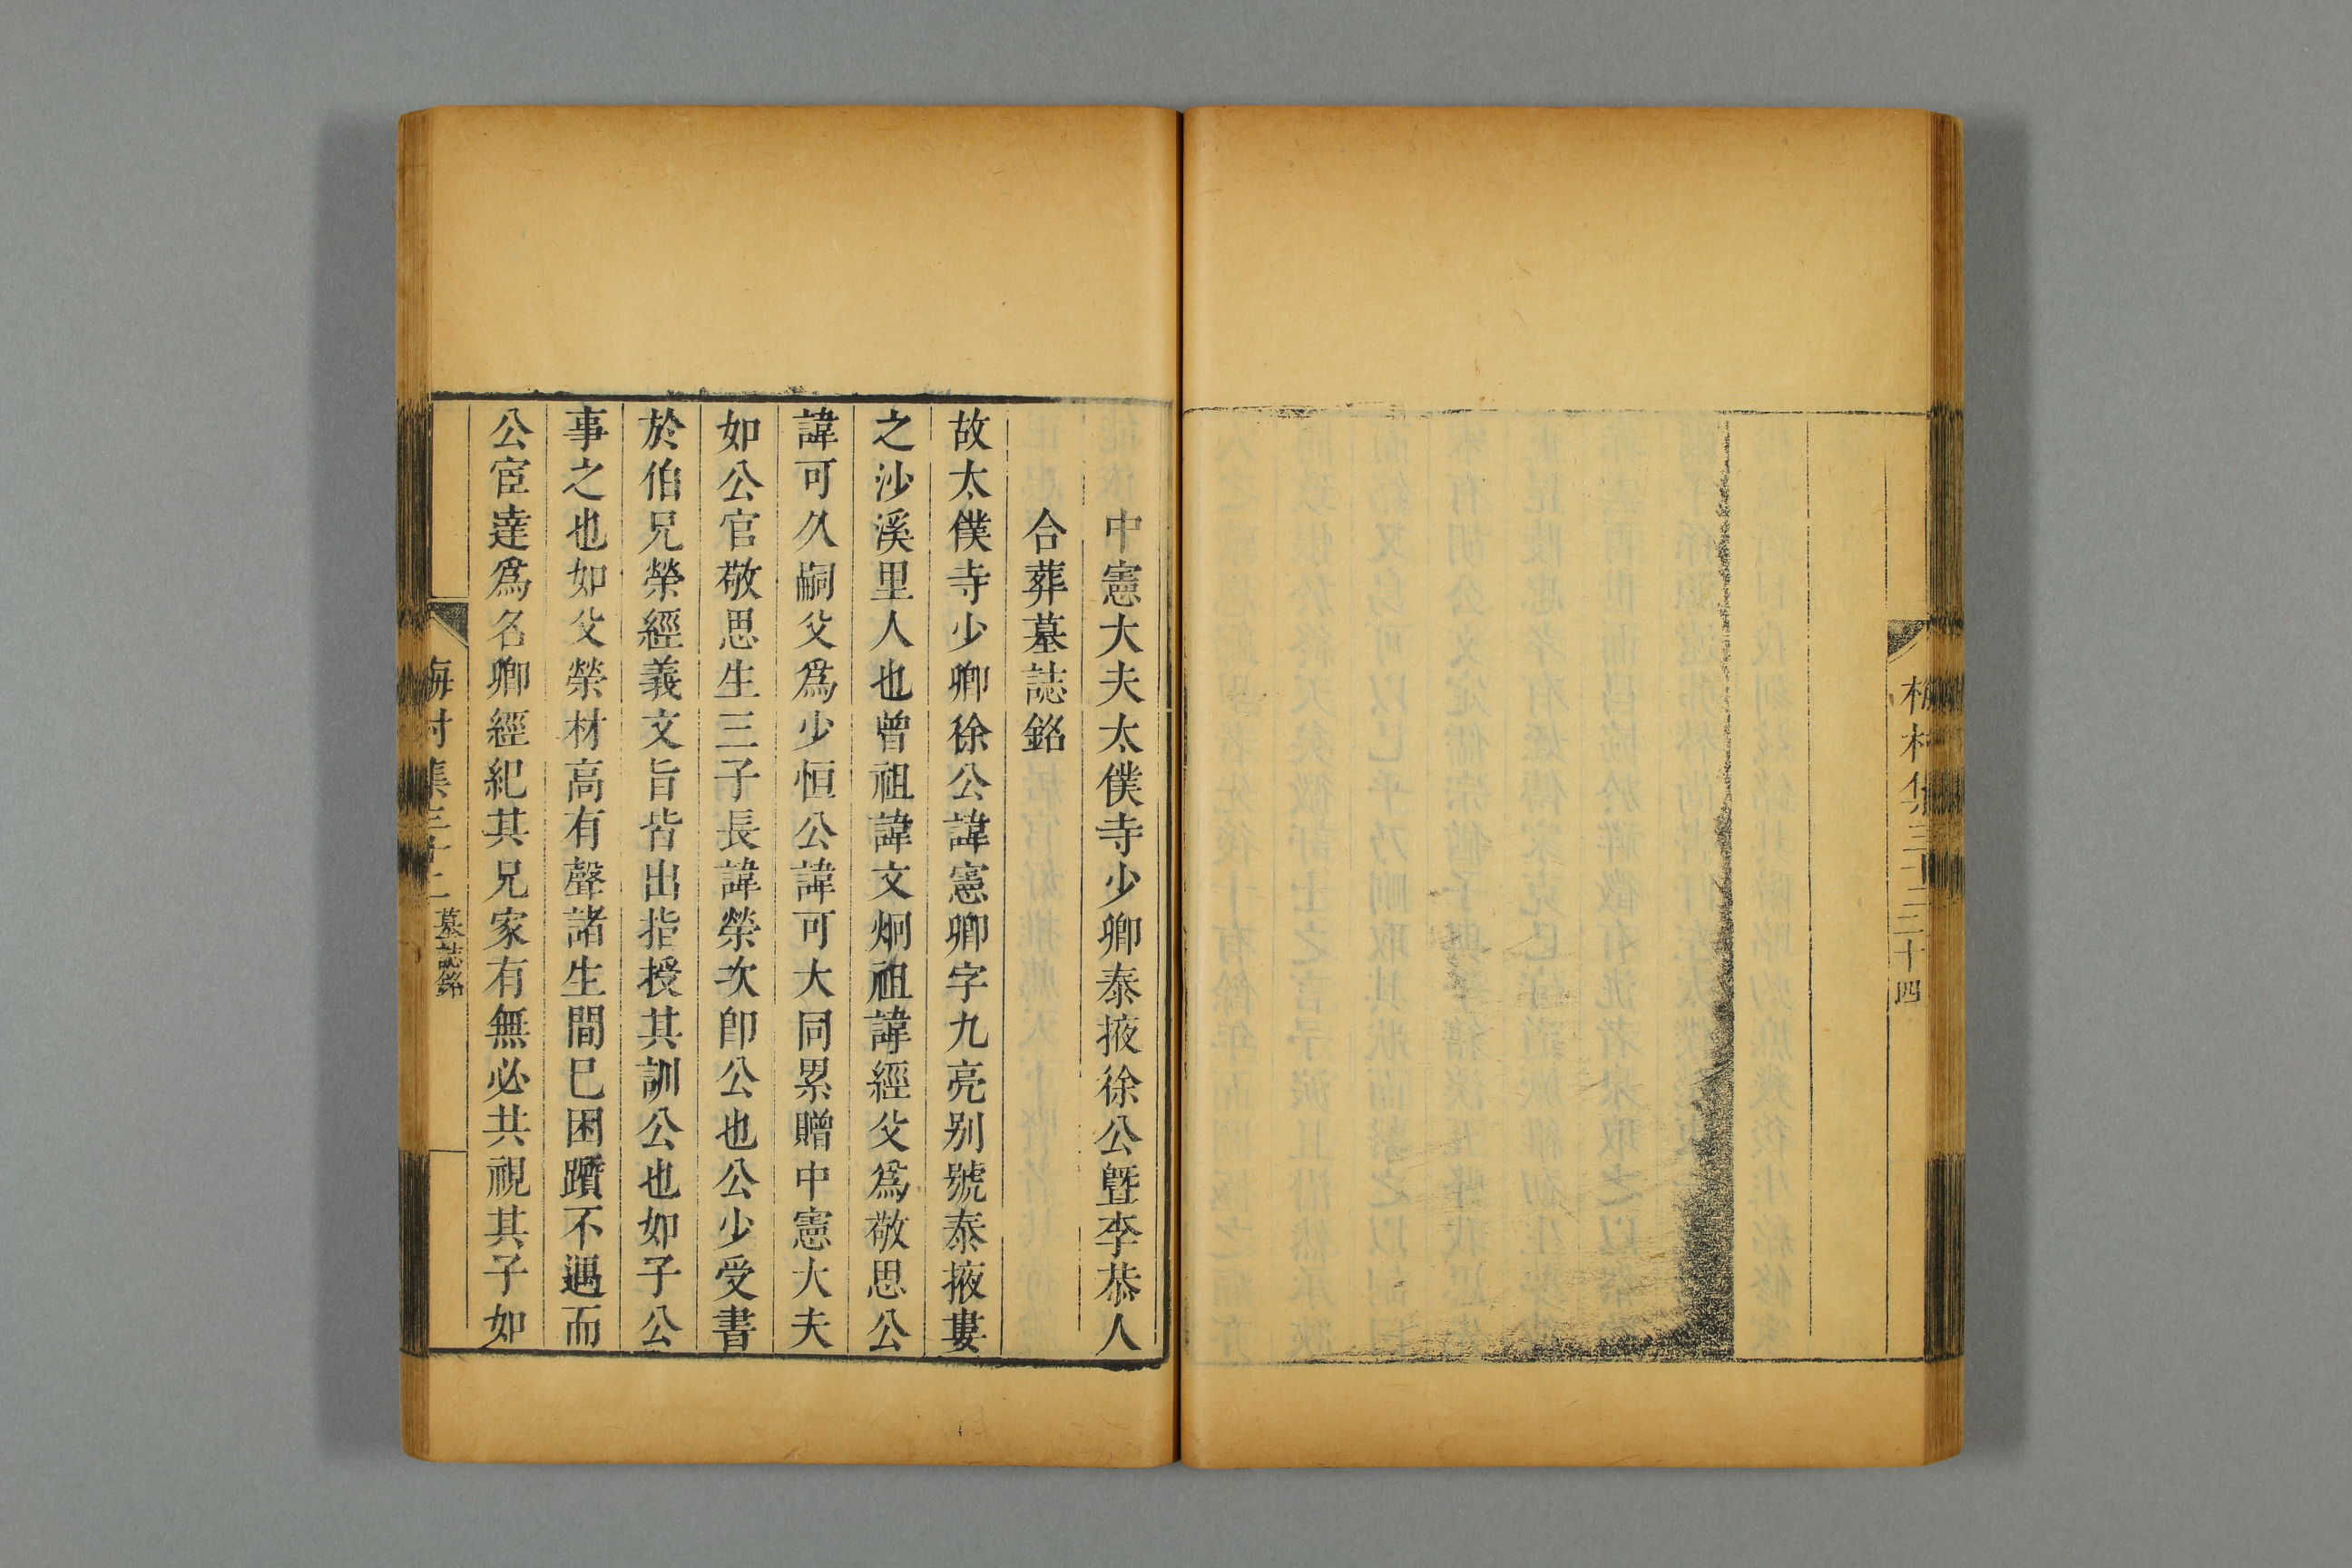 梅村集三十二
二十四
中憲大夫太僕寺少卿泰掖徐公暨李恭人
合葬墓誌銘
故太僕寺少卿徐公諱憲卿字九亮别號泰掖婁
之沙溪里人也曾祖諱文炯祖諱經父爲敬思公
諱可久嗣父爲少恒公諱可大同累贈中憲大夫
如公官敬思生三子長諱榮次卽公也公少受書
於伯兄榮經義文旨皆出指授其訓公也如子公
事之也如父榮材高有聲諸生間巳困躓不遇而
公宦達爲名卿經紀其兄家有無必共視其子如
梅村集三十二
墓誌銘